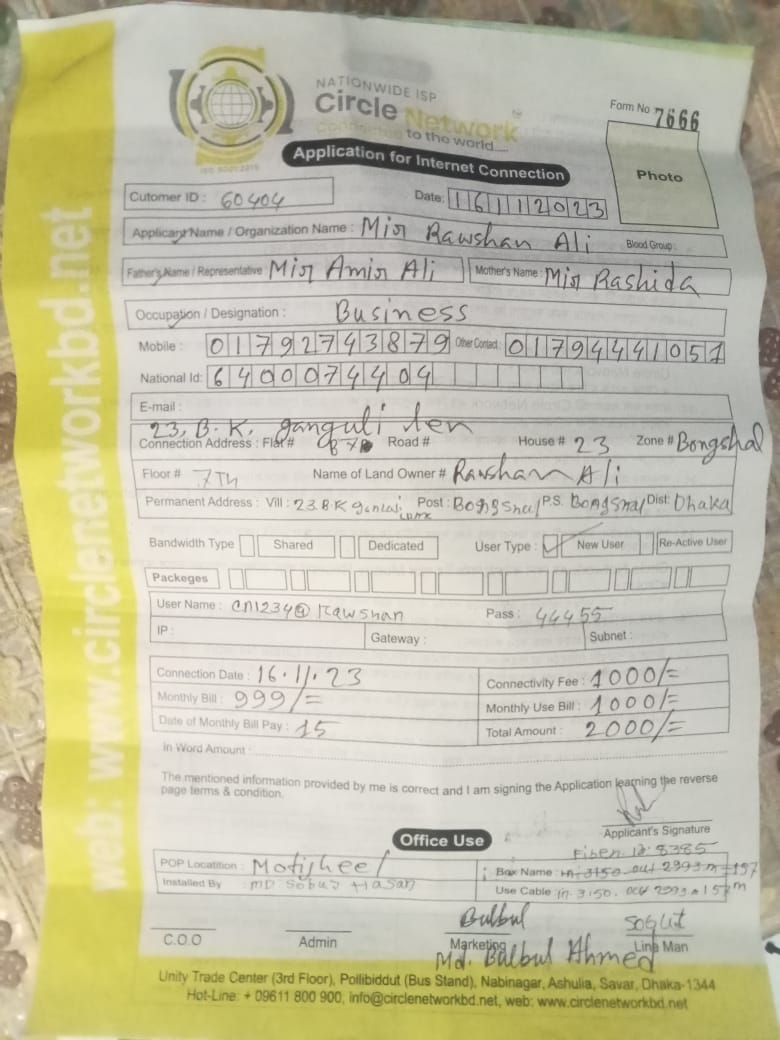 NATIONWIDE ISP
Circle Network
Connected to the world....
ISO 9001:2015
Form No 7666
Application for Internet Connection
Photo
Cutomer ID : 60404
Date: 16112023
Applicant Name / Organization Name : Mir Rawshan Ali Blood Group:
Father's Name / Representative: Mir Amir Ali Mother's Name : Mir Rashida
Occupation / Designation : Business
Mobile : 01792743879 Other Contact : 01794441051
National Id: 6400074404
E-mail :
23, B.K. ganguli len
Connection Address : Flat# B7 Road # House # 23 Zone # Bongshal
Floor # 7Th Name of Land Owner # Rawshan Ali
Permanent Address : Vill : 23.B.K Post : P.S. Dist: Dhaka
Bandwidth Type Shared Dedicated User Type : New User Re-Active User
Packeges
User Name : cn1234@Rawshan Pass : 44455
IP : Gateway : Subnet :
Connection Date : 16.11.23 Connectivity Fee : 1000/=
Monthly Bill : 999/= Monthly Use Bill : 1000/=
Date of Monthly Bill Pay : 15 Total Amount : 2000/=
In Word Amount :
The mentioned information provided by me is correct and I am signing the Application learning the reverse
page terms & condition.
Applicant's Signature
Office Use
Fiber. ID: 8385
POP Locatition : Motijheel Bax Name : in-3150 out 2993 m = 157
Installed By : MD Sobuj Hasan Use Cable : in. 3150. out 2993 = 157m
Bulbul
C.O.O Admin Marketing Line Man
Md. Balbul Ahmed
Unity Trade Center (3rd Floor), Pollibiddut (Bus Stand), Nabinagar, Ashulia, Savar, Dhaka-1344
Hot-Line: + 09611 800 900, info@circlenetworkbd.net, web: www.circlenetworkbd.net
web: www.circlenetworkbd.net